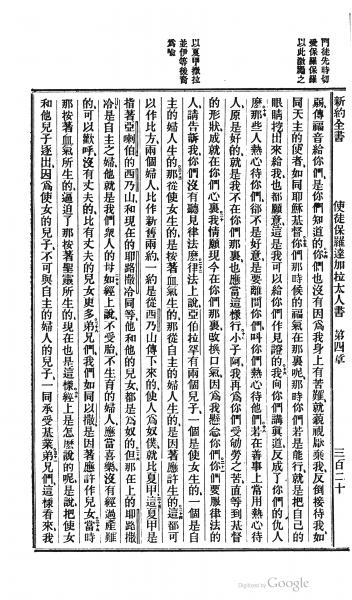 門徒先時切
愛保羅保羅
以此激勵之
以夏甲撒拉
並伊等後裔
爲喻
新約全書 使徒保羅達加拉太人書 第四章 三百二十
弱、傳福音給你們、是你們知道的、你們也沒有因爲我身上有苦難、就藐視厭棄我、反倒接待我如
同天主的使者、如同耶穌基督、你們那時候的福氣在那裏呢、那時你們若是能行、就是把自己的
眼睛挖出來給我、也都願意、這是我可以給你們作見證的、我向你們講眞道、反成了你們的仇人
麽、那些人熱心待你們、卻不是好意、是要離間你們、叫你們熱心待他們、若在善事上常用熱心待
人、原是好的、就是我不在你們那裏、也應當這樣行、小子阿、我再爲你們受劬勞之苦、直等到基督
的形狀成就在你們心裏、我情願現今在你們那裏、改換口氣、因爲我懸念你們、你們要服律法的
人、請告訴我、你們沒有聽見律法麽、律法上說、亞伯拉罕有兩個兒子、一個是使女生的、一個是自
主的婦人生的、那從使女生的、是按著血氣生的、那從自主的婦人生的、是因著應許生的、這都可
以作比方、兩個婦人、比作新舊兩約、一約是從西乃山傳下來的、使人爲奴僕、就比夏甲、這夏甲是
指著亞喇伯的西乃山、和現在的耶路撒冷同等、他和他的兒女都是爲奴的、但那在上的耶路撒
冷、是自主之婦、他就是我們衆人的母、如經上說、不受胎不生育的婦人、應當喜樂、沒有經過產難
的、可以歡呼、沒有丈夫的、比有丈夫的兒女更多、弟兄們、我們如同以撒、是因著應許作兒女、當時
那按著血氣所生的、逼迫了那按著聖靈所生的、現在也是這樣、經上是怎麽說的呢、是說、把使女
和他兒子逐出、因爲使女的兒子、不可與自主的婦人的兒子、一同承受基業、弟兄們、這樣看來、我
Digitized by Google